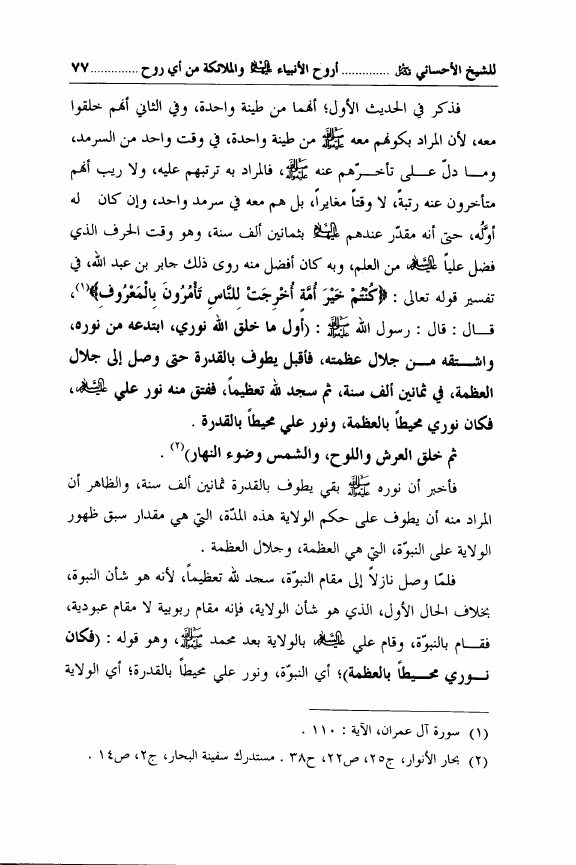 للشيخ الأحسائي قدس ............. أروح الأنبياء عليهم السلام والملائكة من أي روح ............. ٧٧
فذكر في الحديث الأول؛ أنهما من طينة واحدة، وفي الثاني أنهم خلقوا
معه، لأن المراد بكونهم معه ﷺ من طينة واحدة، في وقت واحد من السرمد،
ومـا دلّ علـى تأخـرّهم عنه ﷺ، فالمراد به ترتبهم عليه، ولا ريب أنهم
متأخرون عنه رتبةً، لا وقتاً مغايراً، بل هم معه في سرمد واحد، وإن كان له
أوّله، حتى أنه مقدّر عندهم عليهم السلام بثمانين ألف سنة، وهو وقت الحرف الذي
فضل علياً عليه السلام من العلم، وبه كان أفضل منه روى ذلك جابر بن عبد الله، في
تفسير قوله تعالى : ﴿كُنْتُمْ خَيْرَ أُمَّةٍ أُخْرِجَتْ لِلنَّاسِ تَأْمُرُونَ بِالْمَعْرُوفِ﴾(١)،
قـال : قال : رسول الله ﷺ : (أول ما خلق الله نوري، ابتدعه من نوره،
واشـتقه مـن جلال عظمته، فأقبل يطوف بالقدرة حتى وصل إلى جلال
العظمة، في ثمانين ألف سنة، ثم سجد لله تعظيماً، ففتق منه نور علي عليه السلام،
فكان نوري محيطاً بالعظمة، ونور علي محيطاً بالقدرة .
ثم خلق العرش واللوح، والشمس وضوء النهار)(٢) .
فأخبر أن نوره ﷺ بقي يطوف بالقدرة ثمانين ألف سنة، والظاهر أن
المراد منه أن يطوف على حكم الولاية هذه المدّة، التي هي مقدار سبق ظهور
الولاية على النبوّة، التي هي العظمة، وجلال العظمة .
فلمّا وصل نازلاً إلى مقام النبوّة، سجد لله تعظيماً، لأنه هو شأن النبوة،
بخلاف الحال الأول، الذي هو شأن الولاية، فإنه مقام ربوبية لا مقام عبودية،
فقـام بالنبوّة، وقام علي عليه السلام بالولاية بعد محمد ﷺ، وهو قوله : (فكان
نـوري محـيطاً بالعظمة)؛ أي النبوّة، ونور علي محيطاً بالقدرة؛ أي الولاية
(١) سورة آل عمران، الآية : ١١٠ .
(٢) بحار الأنوار، ج٢٥، ص٢٢، ح٣٨ . مستدرك سفينة البحار، ج٢، ص١٤ .